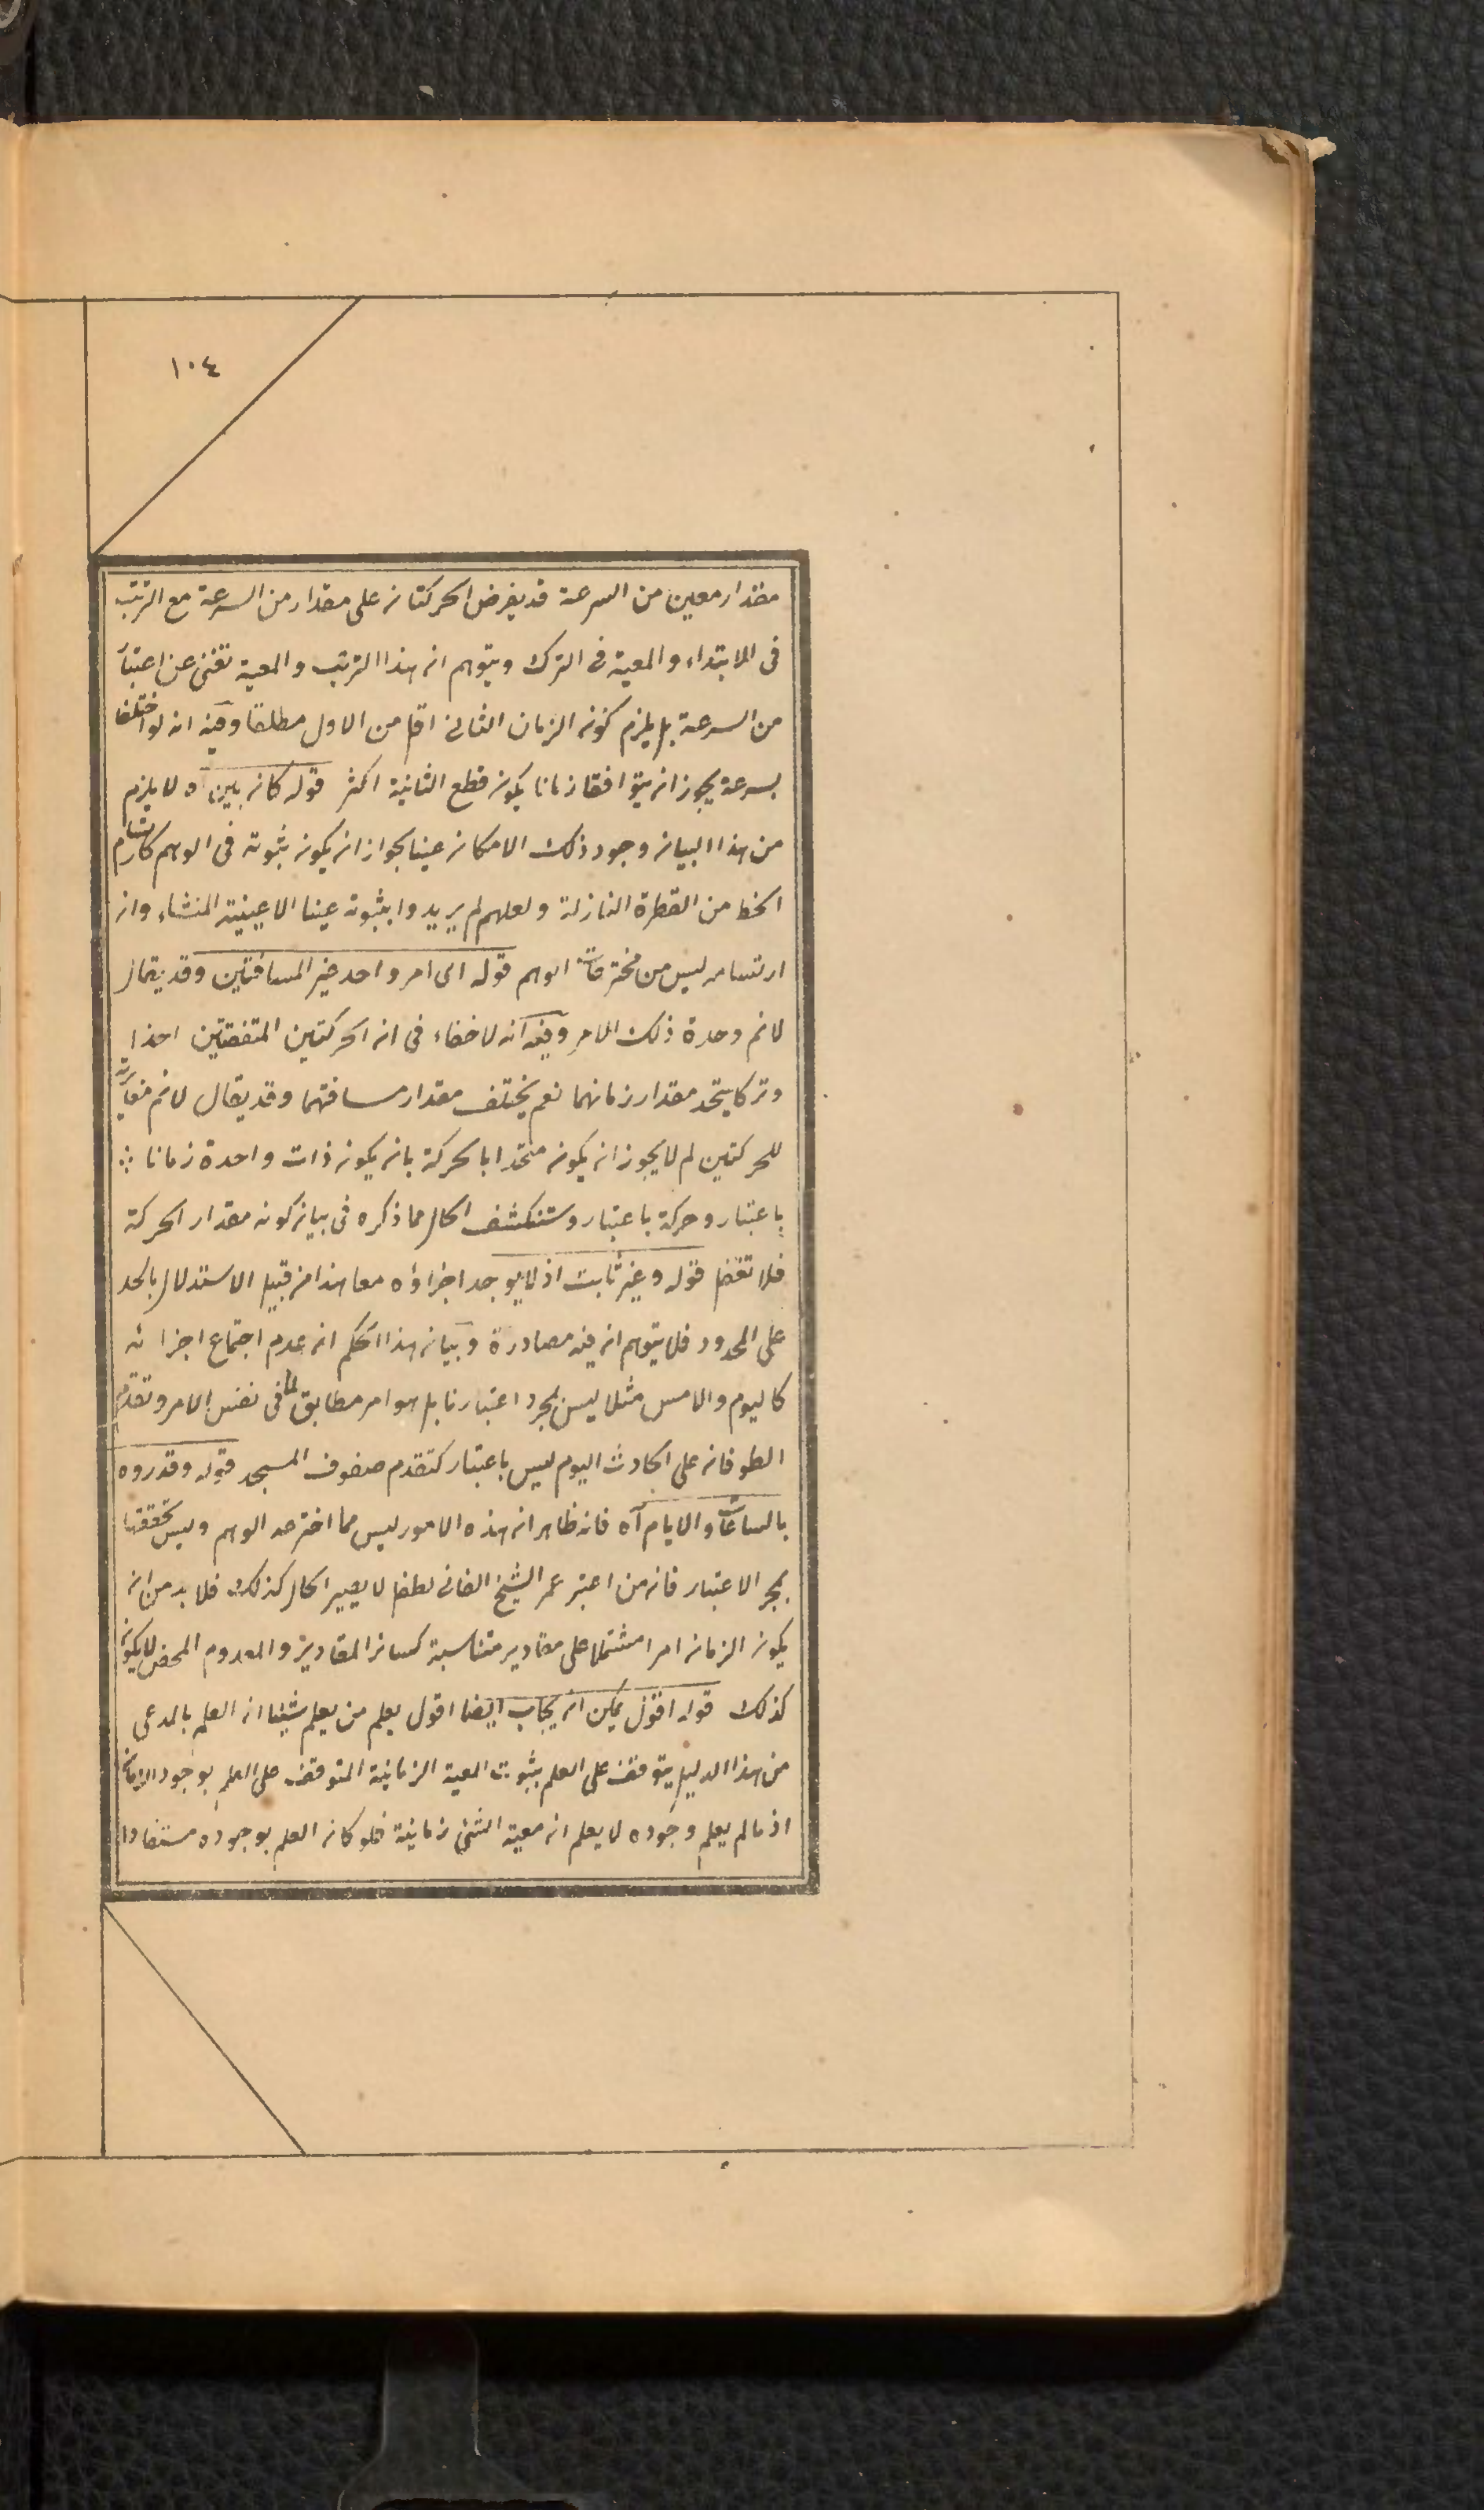 ١٠٤
مقدار معين من السرعة قد يفرض الحركتان على مقدار من السرعة مع الترتب
فى الابتداء والمعية فى الترك ويتوهم ان هذا الترتب والمعية تغنى عن اعتبار
من السرعة بل يلزم كون الزمان الثانى اقل من الاول مطلقا وفيه انه لو اختلفا
بسرعة يجوز ان يتوافقا زمانا يكون قطع الثانية اكثر قوله كان بين آه لا يلزم
من هذا البيان وجود ذلك الامكان عينا بجواز ان يكون ثبوته فى الوهم كارتسام
الخط من القطرة النازلة ولعلهم لم يريدوا بثبوته عينا الا عينية المنشاء وان
ارتسامه ليس من مخترعات الوهم قوله اى امر واحد غير المسافتين وقد يقال
لا نم وحدة ذلك الامر وفيه انه لا خفاء فى ان الحركتين المتفقتين اخذا
وتركا يتحد مقدار زمانهما نعم يختلف مقدار مسافتهما وقد يقال لا نم مغايرته
للحركتين لم لا يجوز ان يكون متحدا بالحركة بان يكون ذات واحدة زمانا ∴
باعتبار وحركة باعتبار وستنكشف الحال مما ذكره فى بيان كونه مقدار الحركة
فلا تغفل قوله وغير ثابت اذ لا يوجد اجزاؤه معا هذا من قبيل الاستدلال بالحد
على المحدود فلا يتوهم ان فيه مصادرة وبيان هذا الحكم ان عدم اجتماع اجزائه
كاليوم والامس مثلا ليس بمجرد اعتبارنا بل هو امر مطابق لما فى نفس الامر وتقدم
الطوفان على الحادث اليوم ليس باعتبار كتقدم صفوف المسجد قوله وقدروه
بالساعات والايام آه فانه ظاهر ان هذه الامور ليس مما اخترعه الوهم وليس تحققها
بمجرد الاعتبار فان من اعتبر عمر الشيخ الفانى لطفل لا يصير الحال كذلك فلا بد من ان
يكون الزمان امرا مشتملا على مقادير متناسبة كسائر المقادير والمعدوم المحض لا يكون
كذلك قوله اقول يمكن ان يجاب ايضا اقول يعلم من يعلم شيئا ان العلم بالمدعى
من هذا الدليل يتوقف على العلم بثبوت المعية الزمانية المتوقف على العلم بوجود الزمان
اذ ما لم يعلم وجوده لا يعلم ان معية الشئ زمانية فلو كان العلم بوجوده مستفادا